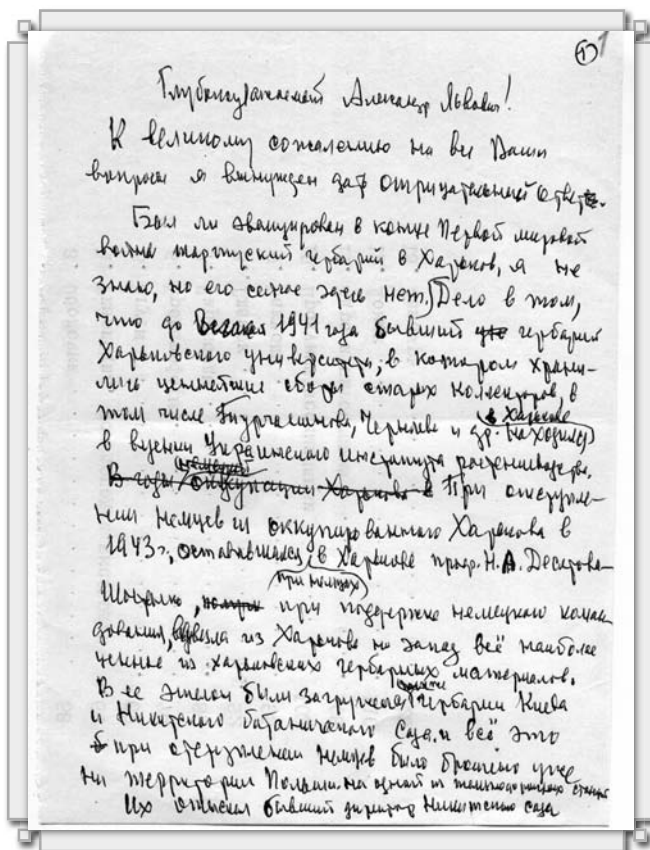 ① 1
Глубокоуважаемый Александр Львович!
К великому сожалению на все Ваши
вопросы я вынужден дать отрицательный ответ.
Был ли эвакуирован в конце Первой мировой
войны тартуский гербарий в Харьков, я не
знаю, но его сейчас здесь нет. Дело в том,
что до 1941 года бывший гербарий
Харьковского университета, в котором храни-
лись ценнейшие сборы старых коллекторов, в
том числе Турчанинова, Черняева и др. находился
в Харькове
в ведении Украинского института растениеводства.
немецкой
В годы оккупации Харькова в При отступле-
нии немцев из оккупированного Харькова в
1943 г., остававшаяся в Харькове проф. Н.А. Десятова-
при немцах
Шостенко, при поддержке немецкого коман-
дования, вывезла из Харькова на запад всё наиболее
ценное из харьковских гербарных материалов.
В её эшелон были загружены гербарии Киева
и Никитского ботанического Сада, и всё это
при отступлении немцев было брошено уже
на территории Польши на одной из железнодорожных станций
Их отыскал бывший директор Никитского сада